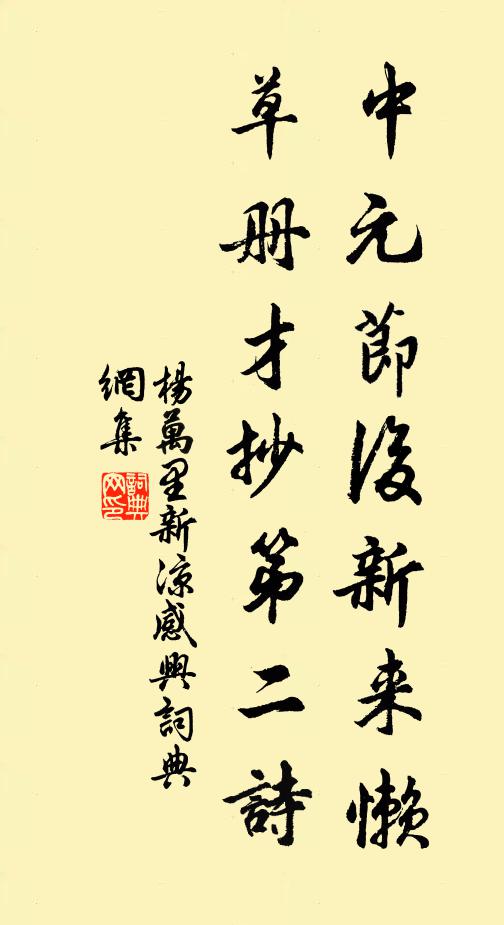 中元節後新来懶
草册才抄第二詩
楊萬里新涼感興詞典
網集
詞典
网印